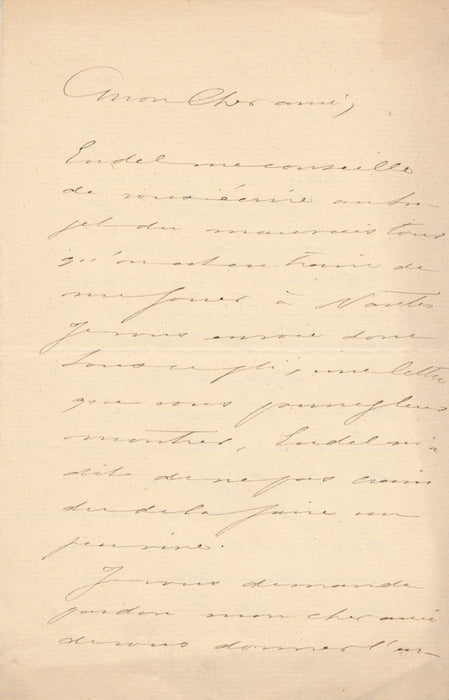 Mon cher ami,
Eudel me conseille
de vous écrire au su-
jet du mauvais tour
qu'on est en train de
me jouer à Nantes
Je vous envoie donc
sous ce pli, une lettre
que vous
montrer, Eudel m'a
dit de ne pas crain
dre de la faire un
peu
Je vous demande
pardon mon cher ami
de vous donner l'en-